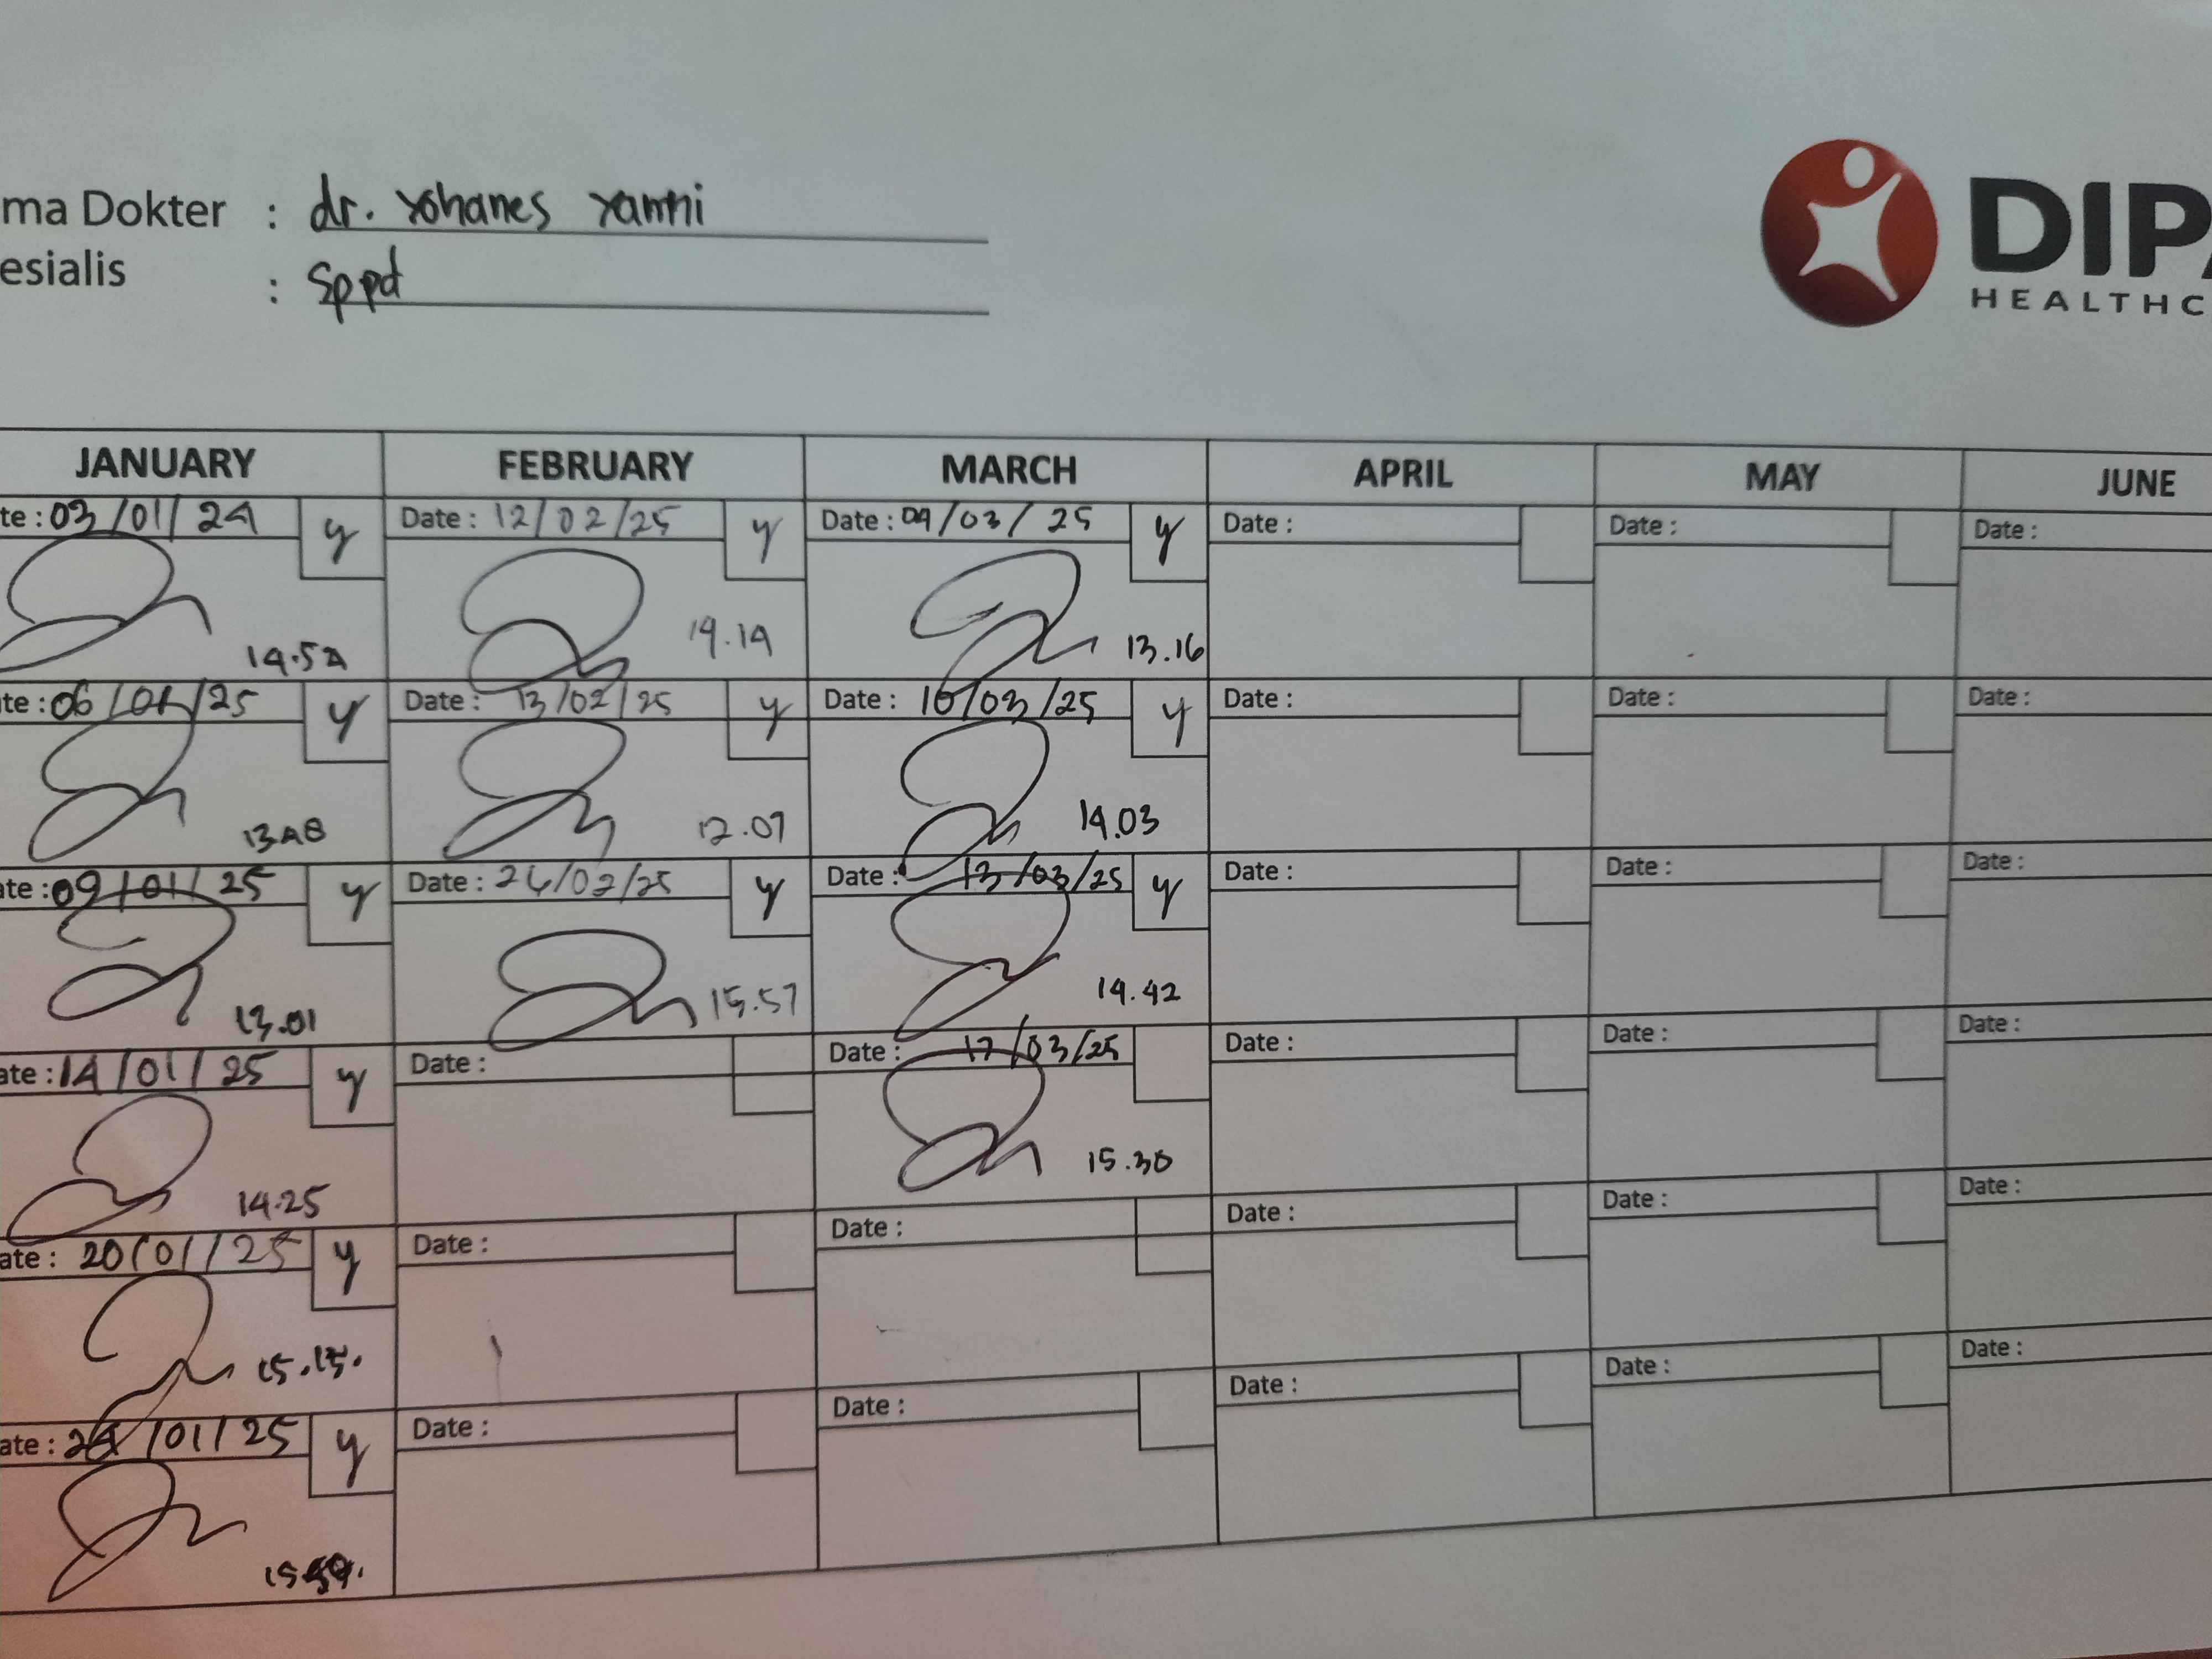 ma Dokter : dr. Yohanes Yanni
esialis : Sppd
DIPA
HEALTHC
JANUARY FEBRUARY MARCH APRIL MAY JUNE
te : 03/01/24 y Date : 12/02/25 y Date : 04/03/25 y Date : Date : Date :
14.54 14.14 13.16
te : 06/01/25 y Date : 13/02/25 y Date : 10/03/25 y Date : Date : Date :
13.48 12.07 14.03
ate : 09/01/25 y Date : 24/02/25 y Date : 13/03/25 y Date : Date : Date :
13.01 15.57 14.42
ate : 14/01/25 y Date : Date : 17/03/25 Date : Date : Date :
14.25 15.30
ate : 20/01/25 y Date : Date : Date : Date : Date :
15.15.
ate : 24/01/25 y Date : Date : Date : Date : Date :